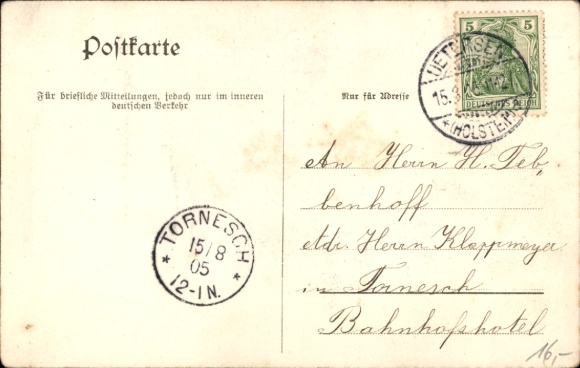 Postkarte
Für briefliche Mitteilungen, jedoch nur im inneren
deutschen Verkehr
Nur für Adresse
5 5
DEUTSCHES REICH
UETERSEN
15.8
(HOLSTEIN)
An Herrn H. Teb,
benhoff
Adr. Herrn Kloppmeyer
in Tornesch
Bahnhofshotel
TORNESCH
15/8
05
12-1N.
16,-